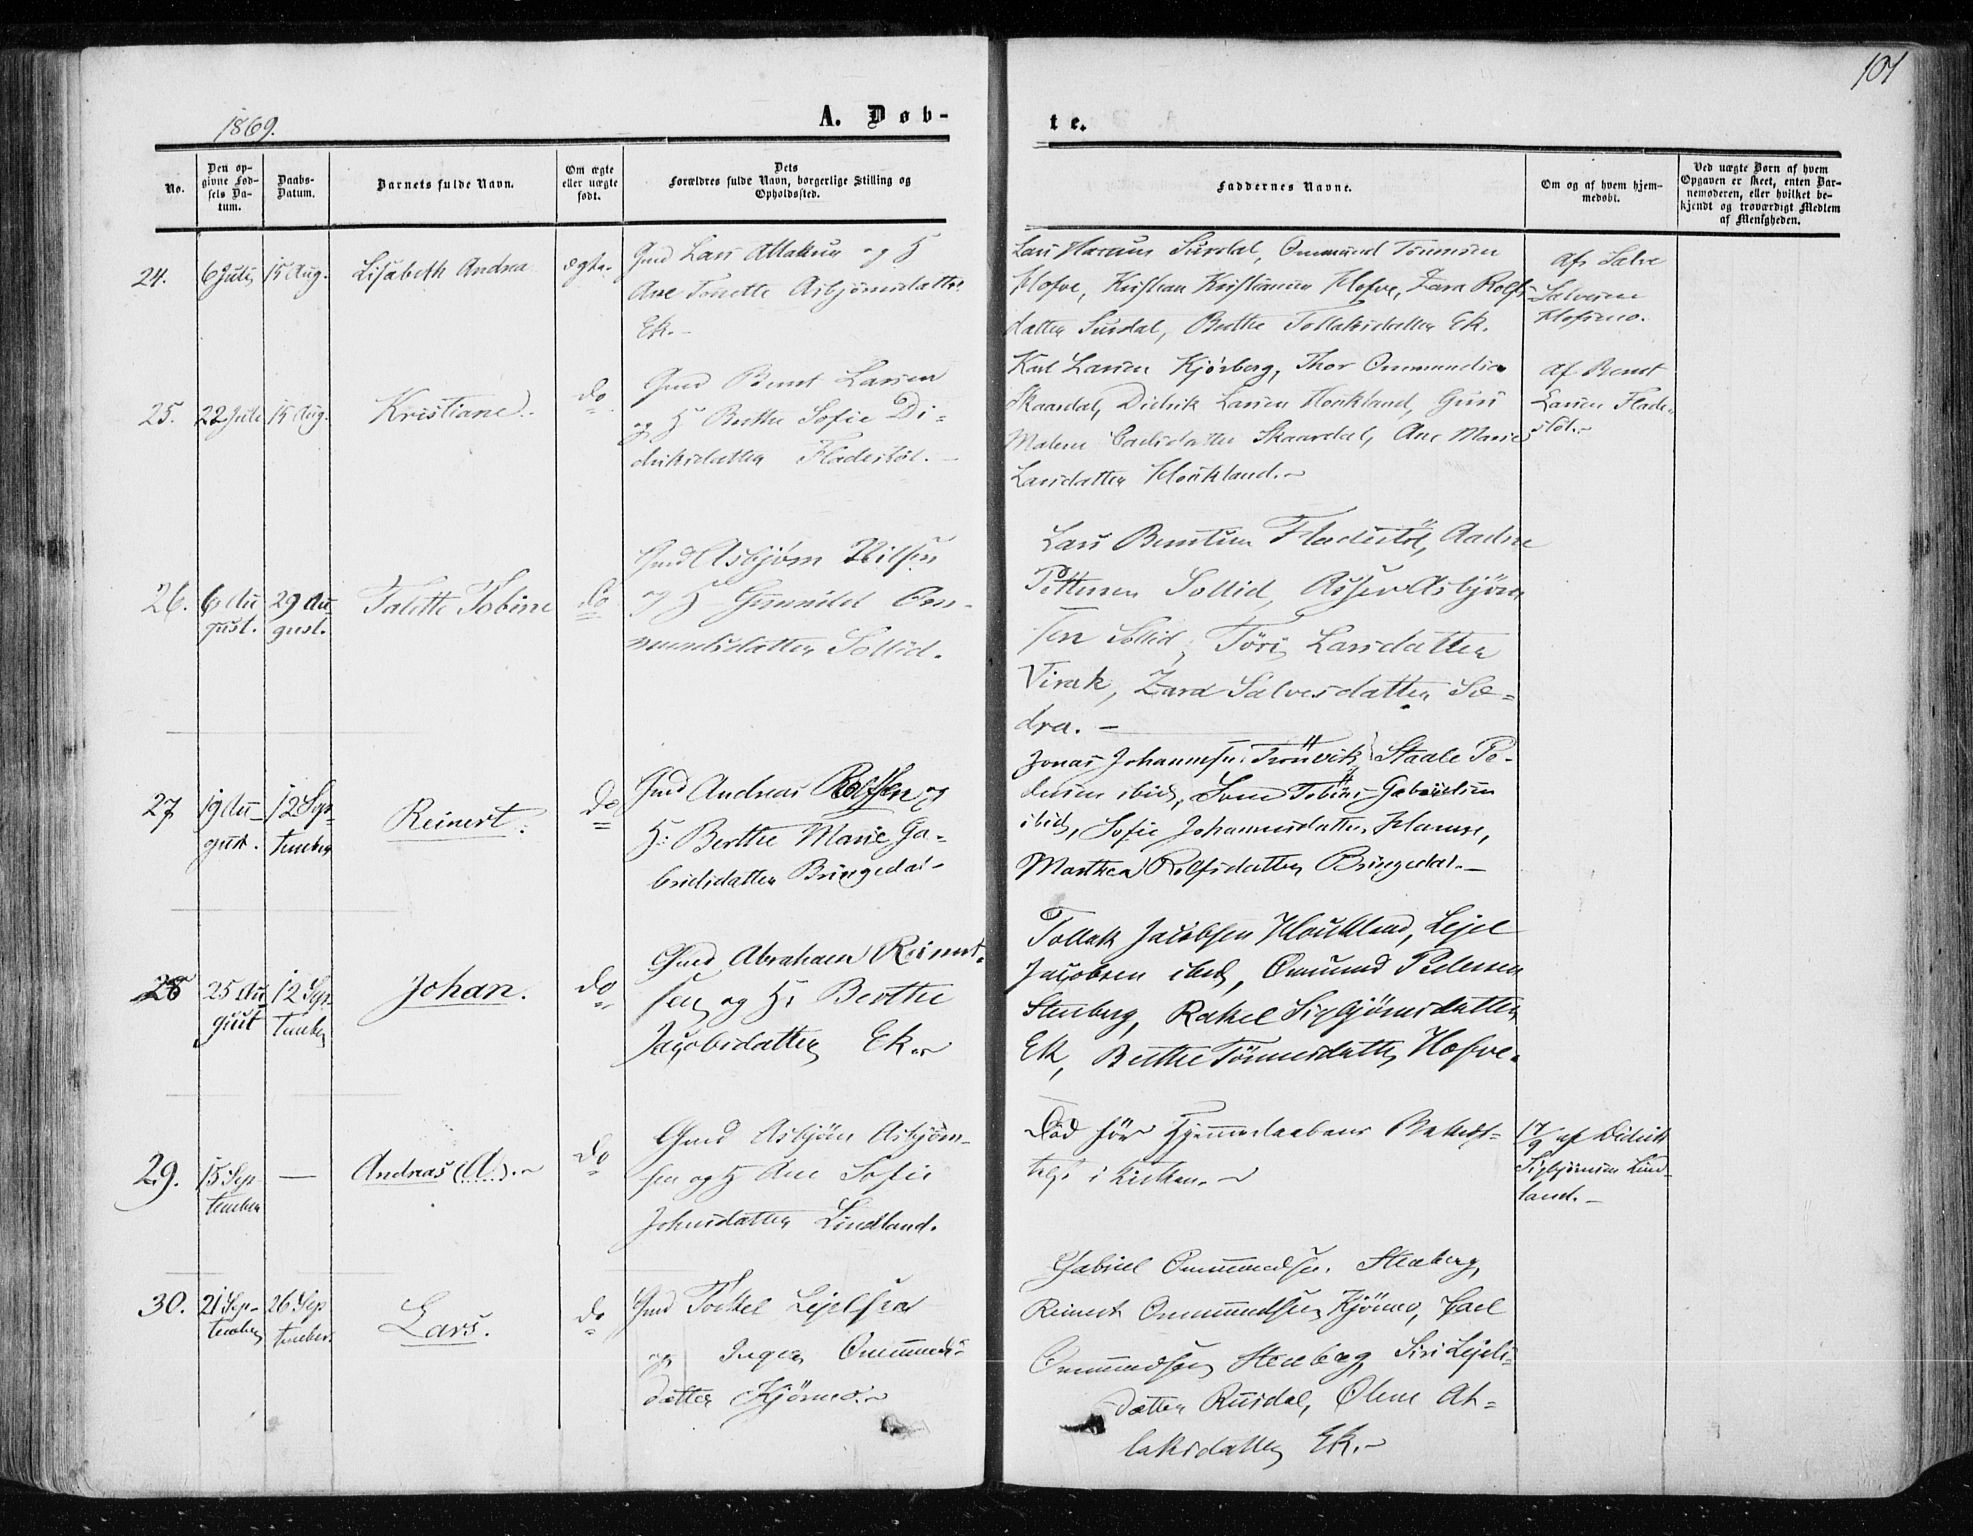 101
1869.
A. Døb-
te.
No.
Den op-
givne Fød-
sels Da-
tum.
Daabs-
Datum.
Barnets fulde Navn.
Om ægte
eller uægte
født.
Dets
Forældres fulde Navn, borgerlige Stilling og
Opholdssted.
Faddernes Navne.
Om og af hvem hjem-
medøbt.
Ved uægte Børn af hvem
Opgaven er skeet, enten Bar-
nemoderen, eller hvilket be-
kjendt og troværdigt Medlem
af Menigheden.
24.
6 Juli
15 Aug.
Lisabeth Andrea
ægte.
Gmd Lars Atlaksen og H
Ane Tonette Asbjørnsdatter
Ek.-
Lars Surdal, Ommund Tønnesen
Hofve, Kristian Kristiansen Hofve, Zara Rolfs-
datter Surdal, Berthe Tollaksdatter Ek.
Af Salve
Salvesen
25.
22 Juli
15 Aug.
Kristiane.
do
Gmd Bernt Larsen
og H Berthe Sofie Di-
driksdatter Fladestøl.-
Karl Larsen Kjørberg, Thor Ommundsen
Skaardal, Didrik Larsen Houkland, Guri
Malene Skaardal, Ane Marie
Larsdatter Houkland.-
Af Bernt
Larsen Flade-
støl.-
26.
6 Au-
gust.
29 Au-
gust.
Talette Tobine
do
Gmd Asbjørn Nilsen
og H Gunnild Om-
mundsdatter Sollid.
Lars Berntsen Fladestøl, Aadne
Pettersen Sollid, Asser Asbjørn-
sen Sollid, Tøri Larsdatter
Virak, Zara Salvesdatter Sæ-
dra.-
27
19 Au-
gust.
12 Sep-
tember
Reinert.
do
Gmd Andreas Rolfsen og
H: Berthe Marie Ga-
brielsdatter Bringedal-
Jonas Johannesen Trønvik, Staale Pe-
dersen ibid, Tobias Gabrielsen
ibid, Sofie Johannesdatter Hamre,
Marthea Rolfsdatter Bringedal.-
28
25 Au
gust
12 Sep-
tember
Johan.
do
Gmd Abraham Reinert-
sen og H. Berthe
Jacobsdatter Ek.-
Tollak Jacobsen Houkland, Lejel
Jacobsen ibid, Omund Pedersen
Stenberg, Rakel Sigbjørnsdatter
Ek, Berthe Tønnesdatter Hofve.
29.
15 Sep
tember
—
Andreas (A).-
do
Gmd Asbjørn Asbjørn-
sen og H Ane Sofie
Johnsdatter Lindland.
Død før Hjemmedaabens Bekræf-
telse i Kirken.-
17/9 af Didrik
Sigbjørnsen Lind-
land.-
30.
21 Sep-
tember
26 Sep
tember.
Lars.
do
Gmd Torkel Lejelsen
og Inger Ommunds-
datter Kjørmo.-
Gabriel Ommundsen Stenberg,
Reinert Ommundsen Kjørmo, Carl
Ommundsen Stenberg, Siri Lejels-
datter Rusdal, Olene At-
laksdatter Ek.-